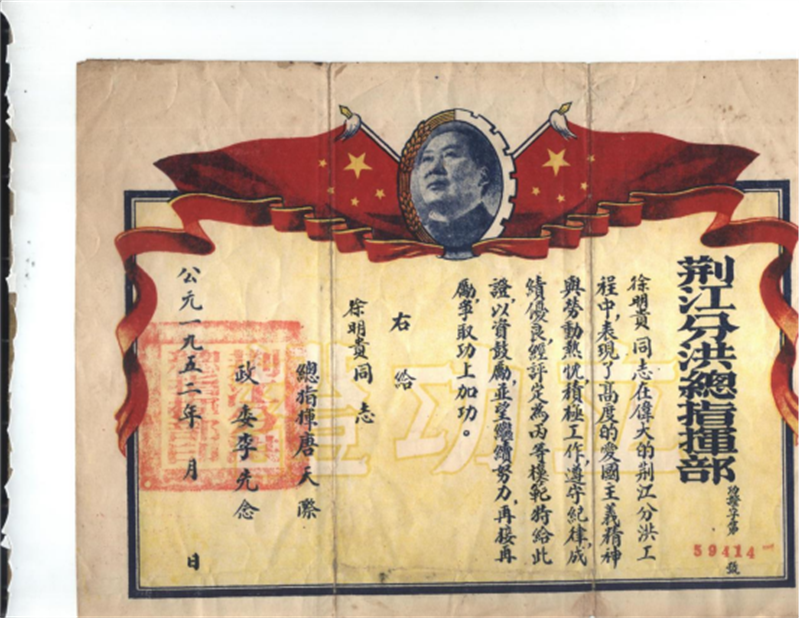 荆江分洪總指揮部
功證字第
59414
號
徐明貴同志在偉大的荆江分洪工
程中,表現了高度的愛國主義精神
與勞動熱忱,積極工作,遵守紀律,成
績優良,經評定為丙等模範特給此
證,以資鼓勵,並望繼續努力,再接再
勵,爭取功上加功。
右給
徐明貴同志
總指揮唐天際
政委李先念
公元一九五二年 月 日
立功證